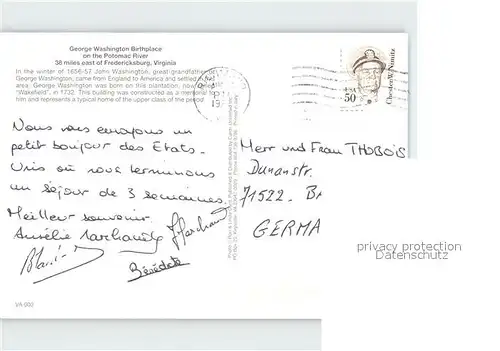 George Washington Birthplace
on the Potomac River
38 miles east of Fredericksburg, Virginia
In the winter of 1656-57 John Washington, great grandfather
George Washington, came from England to America and settled in
area. George Washington was born on this plantation, now
"Wakefield", in 1732. This building was constructed as a memorial
him and represents a typical home of the upper class of the period
USA
50
Chester W. Nimitz
Nous vous envoyons un
petit bonjour des Etats-
Unis où nous terminons
un séjour de 3 semaines.
Meilleur souvenir
Aurélie Marchand
J. Marchand
Bénédicte
Herr und Frau THOBOIS
Dunanstr.
71522. BA
GERMA
privacy protection
Datenschutz
VA-002